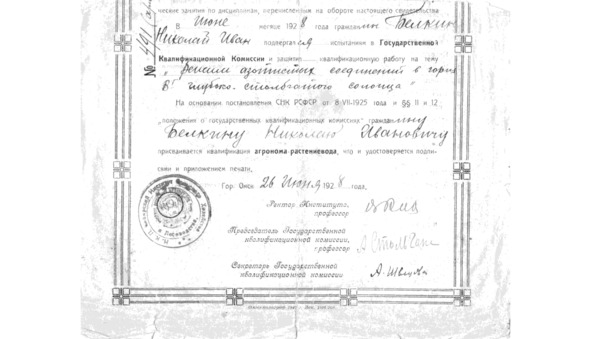 ческие занятия по дисциплинам, перечисленным на обороте настоящего свидетельства
В Июне месяце 1928 года граждани Белкин
Николай Иван подвергался испытаниям в Государственной
Квалификационной Комиссии и защитил квалификационную работу на тему
„ азотистых соединений в гориз
В глубоко-столбчатого солонца"
На основании постановления СНК РСФСР от 8-VII-1925 года и §§ II и 12
„положения о государственных квалификационных комиссиях" гражданину
Белкину Николаю Ивановичу
присваивается квалификация агронома-растениевода, что и удостоверяется подпи-
сями и приложением печати.
Гор. Омск 26 Июня 1928 года.
Ректор Института,
профессор
Председатель Государственной
квалификационной комиссии,
профессор
Секретарь Государственной
квалификационной комиссии
№ 491